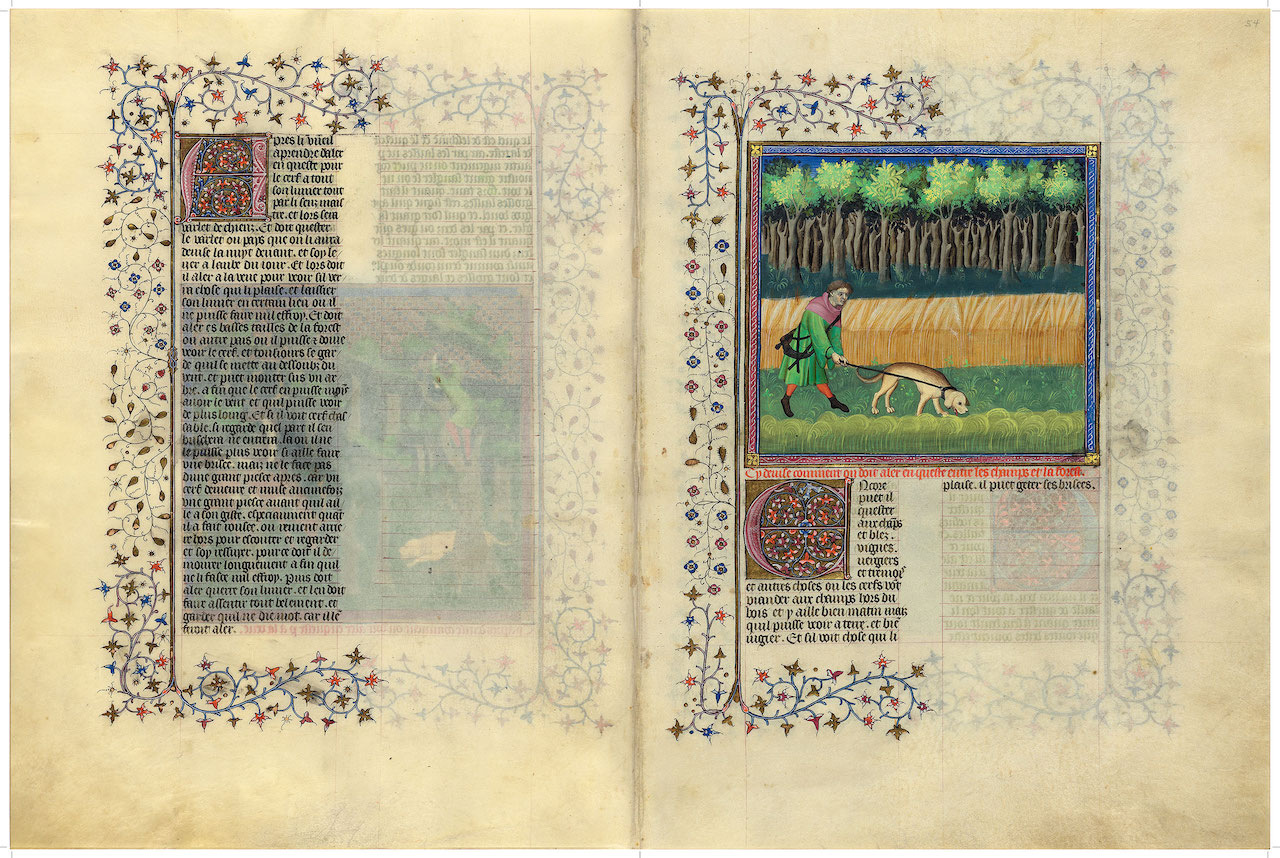 pres li vueil
aprendre daler
en queste pour
le cerf a tout
son limier tout
par li senz mais
tre. et lors sera
varlet de chienz. Et doit quester
le varlet ou pays que on li aura
devise la nuyt devant. et soy le
ver a laube du jour. Et lors doit
il aler a la veue pour veoir sil ver
ra chose qui li plaise. et laissier
son limier en certain lieu ou il
ne puisse faire nul effroy. Et doit
aler es basses tailles de la forest
ou autre pais ou il puisse
veoir le cerf. et tousjours se gar
de quil se mette au dessoubz du
vent. et puet monter sus un ar
bre. a fin que le cerf en puisse moins
avoir le vent et quil puisse veoir
de plus loing. Et si il voit cerf chas
sable. si regarde quel part il sen
buschera ne entrera. la ou il ne
le puisse plus veoir si aille faire
une brisee. maiz ne le face pas
dune grant piesce apres. car un
cerf demeure et muse aucunefoiz
une grant piesce avant quil ail
le a son giste. especiaument quant
il a fait rousee. ou revient arrie
re hors pour escouter et regarder
et soy ressuyer. pour ce doit il de
mourer longuement a fin quil
ne li fasce nul effroy. Puis doit
aler querre son limier. et len doit
faire assentir tout belement. et
garder quil ne die mot. car il le
feroit aler.
54
Cy devise comment on doit aler en queste entre les champs et la forest.
Ncore
puet il
quester
aux chaps
et blez.
vignes.
vergiers
et
et autres choses ou les cerfs vot
viander aux champs hors du
bois et y aille bien matin maiz
quil puisse veoir a terre. et bien
jugier. Et sil voit chose qui li
plaise. il puet geter ses brisees.